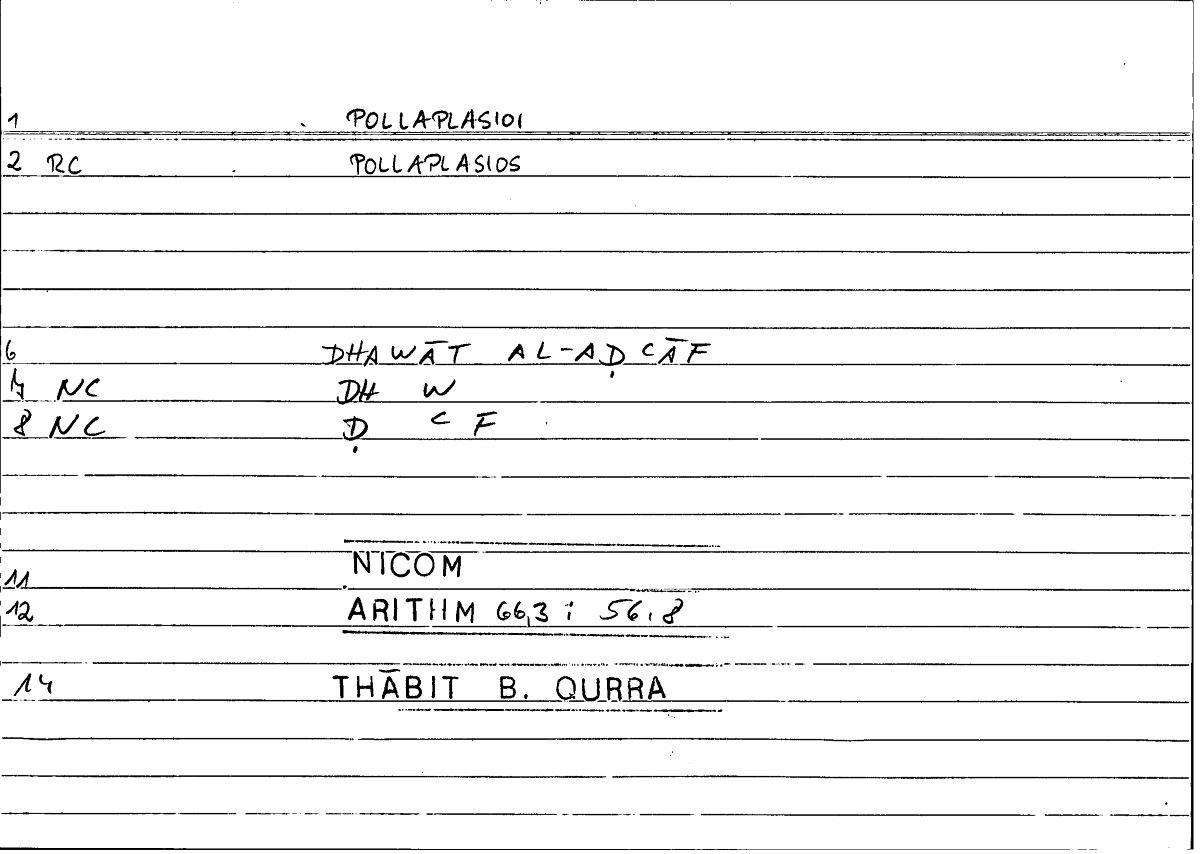 1 POLLAPLASIOI
2 RC POLLAPLASIOS
6 DHAWĀT AL-AḌ CĀF
7 NC DH W
8 NC Ḍ C F
11 NICOM
12 ARITHM 66,3 ; 56.8
14 THĀBIT B. QURRA